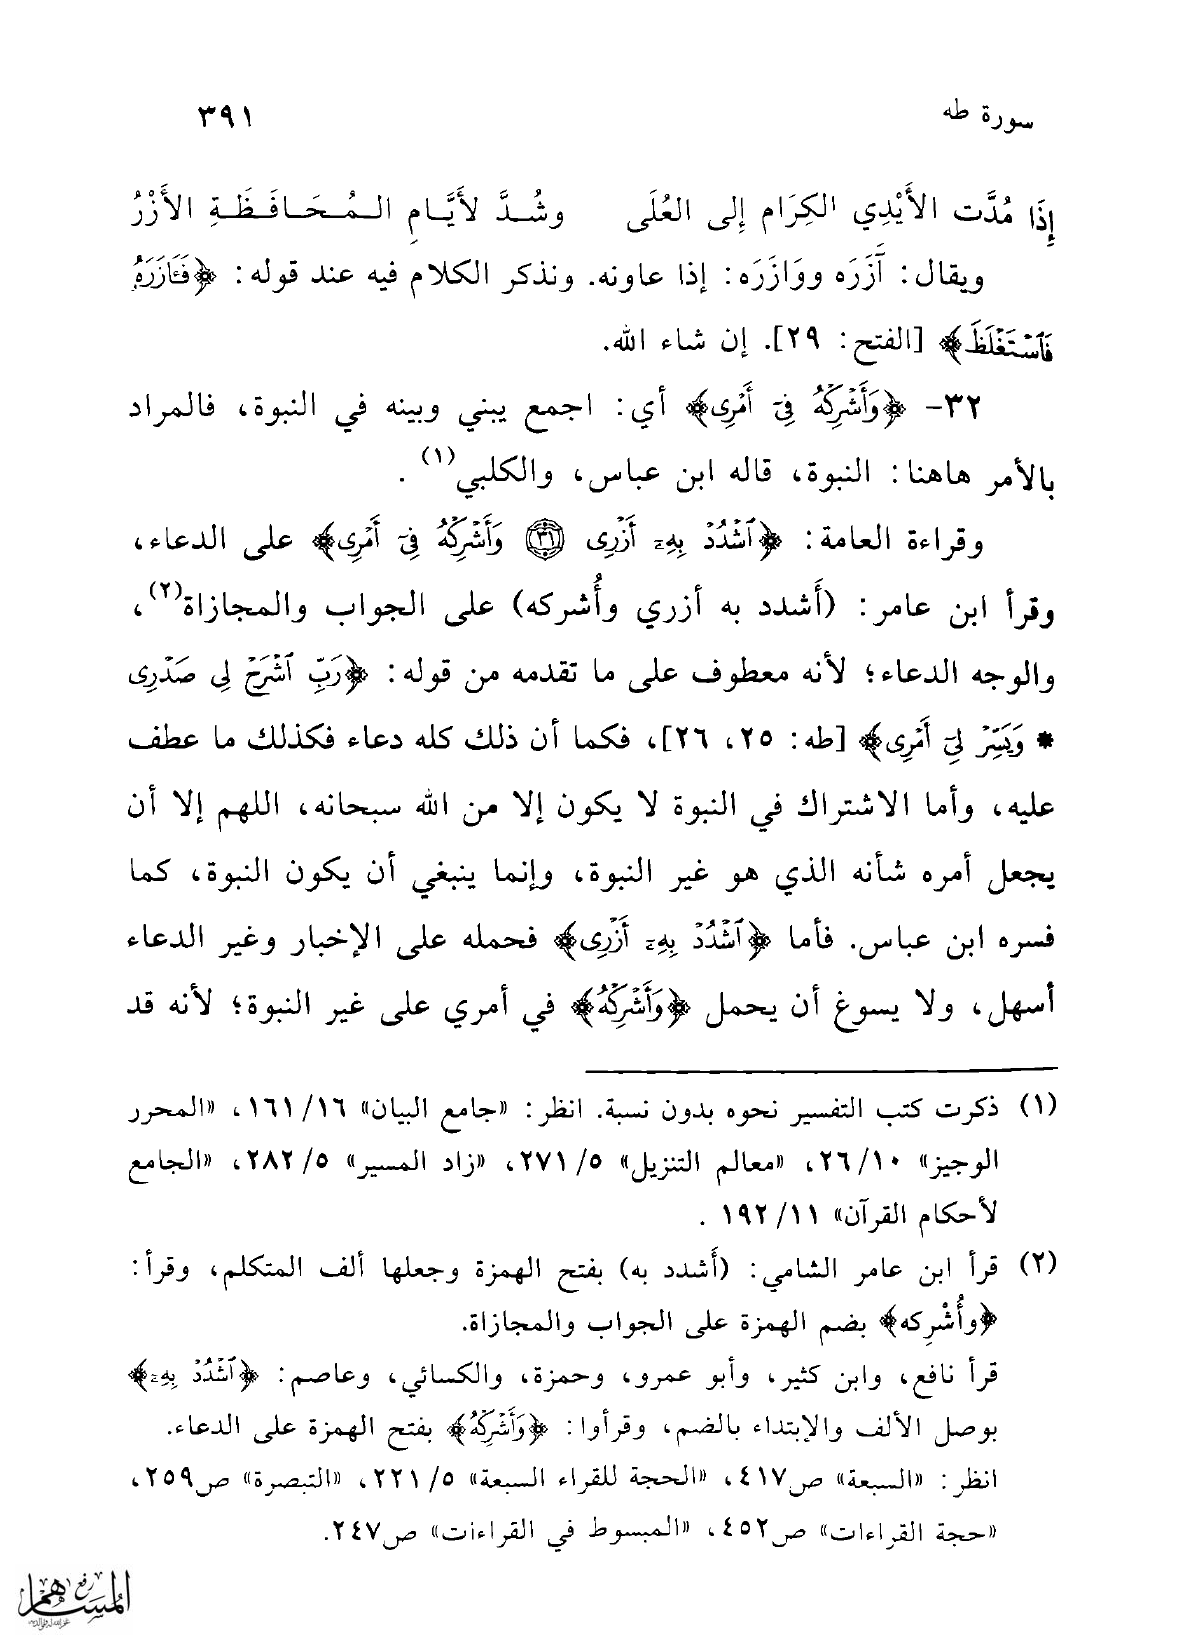 سورة طه ٣٩١
إِذَا مُدَّت الأَيْدِي الكِرَام إِلى العُلَى وشُدَّ لأَيَّامِ المُحَافَظَةِ الأَزْرُ
ويقال: آزَرَه ووَازَرَه: إذا عاونه. ونذكر الكلام فيه عند قوله: ﴿فَـَٔازَرَهُۥ
فَٱسۡتَغۡلَظَ﴾ [الفتح: ٢٩]. إن شاء الله.
٣٢- ﴿وَأَشۡرِكۡهُ فِيٓ أَمۡرِي﴾ أي: اجمع يبني وبينه في النبوة، فالمراد
بالأمر هاهنا: النبوة، قاله ابن عباس، والكلبي(١) .
وقراءة العامة: ﴿ٱشۡدُدۡ بِهِۦٓ أَزۡرِي ٣١ وَأَشۡرِكۡهُ فِيٓ أَمۡرِي﴾ على الدعاء،
وقرأ ابن عامر: (أَشدد به أزري وأُشركه) على الجواب والمجازاة(٢)،
والوجه الدعاء؛ لأنه معطوف على ما تقدمه من قوله: ﴿رَبِّ ٱشۡرَحۡ لِي صَدۡرِي
* وَيَسِّرۡ لِيٓ أَمۡرِي﴾ [طه: ٢٥، ٢٦]، فكما أن ذلك كله دعاء فكذلك ما عطف
عليه، وأما الاشتراك في النبوة لا يكون إلا من الله سبحانه، اللهم إلا أن
يجعل أمره شأنه الذي هو غير النبوة، وإنما ينبغي أن يكون النبوة، كما
فسره ابن عباس. فأما ﴿ٱشۡدُدۡ بِهِۦٓ أَزۡرِي﴾ فحمله على الإخبار وغير الدعاء
أسهل، ولا يسوغ أن يحمل ﴿وَأَشۡرِكۡهُ﴾ في أمري على غير النبوة؛ لأنه قد
(١) ذكرت كتب التفسير نحوه بدون نسبة. انظر: «جامع البيان» ١٦/ ١٦١، «المحرر
الوجيز» ١٠/ ٢٦، «معالم التنزيل» ٥/ ٢٧١، «زاد المسير» ٥/ ٢٨٢، «الجامع
لأحكام القرآن» ١١/ ١٩٢ .
(٢) قرأ ابن عامر الشامي: (أَشدد به) بفتح الهمزة وجعلها ألف المتكلم، وقرأ:
﴿وأُشْرِكه﴾ بضم الهمزة على الجواب والمجازاة.
قرأ نافع، وابن كثير، وأبو عمرو، وحمزة، والكسائي، وعاصم: ﴿ٱشۡدُدۡ بِهِۦٓ﴾
بوصل الألف والإبتداء بالضم، وقرأوا: ﴿وَأَشۡرِكۡهُ﴾ بفتح الهمزة على الدعاء.
انظر: «السبعة» ص٤١٧، «الحجة للقراء السبعة» ٥/ ٢٢١، «التبصرة» ص٢٥٩،
«حجة القراءات» ص٤٥٢، «المبسوط في القراءات» ص٢٤٧.